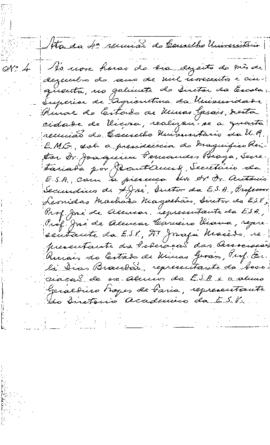 Ata da 4ª reunião do Conselho Universitário
Nº 4
Às nove horas do dia dezoito do mês de
dezembro do ano de mil novecentos e cin-
quenta, no gabinete do Diretor da Escola
Superior de Agricultura da Universidade
Rural do Estado de Minas Gerais, nesta
cidade de Viçosa, realizou-se a quarta
reunião do Conselho Universitário da U.R.
E.M.G., sob a presidencia do Magnífico Rei-
tor Dr. Joaquim Fernandes Braga, secre-
tariada por Secretário da
E.S.A., com a presença dos Srs. Dr. Antonio
Secundino de S. José, Diretor da E.S.A., Professor
Leonidas Machado Magalhães, Diretor da E.S.V.,
Prof. José de Alencar, representante da E.S.A.,
Prof. José de Alencar Carneiro Viana, repre-
sentante da E.S.V., Dr. Josafá Macedo, re-
presentante da Federação das Associações
Rurais do Estado de Minas Gerais, Prof. Er-
li Dias Brandão, representante da Asso-
ciação de ex-Alunos da E.S.A. e o aluno
Geraldino Lopes de Faria, representante
do Diretorio Academico da E.S.V.